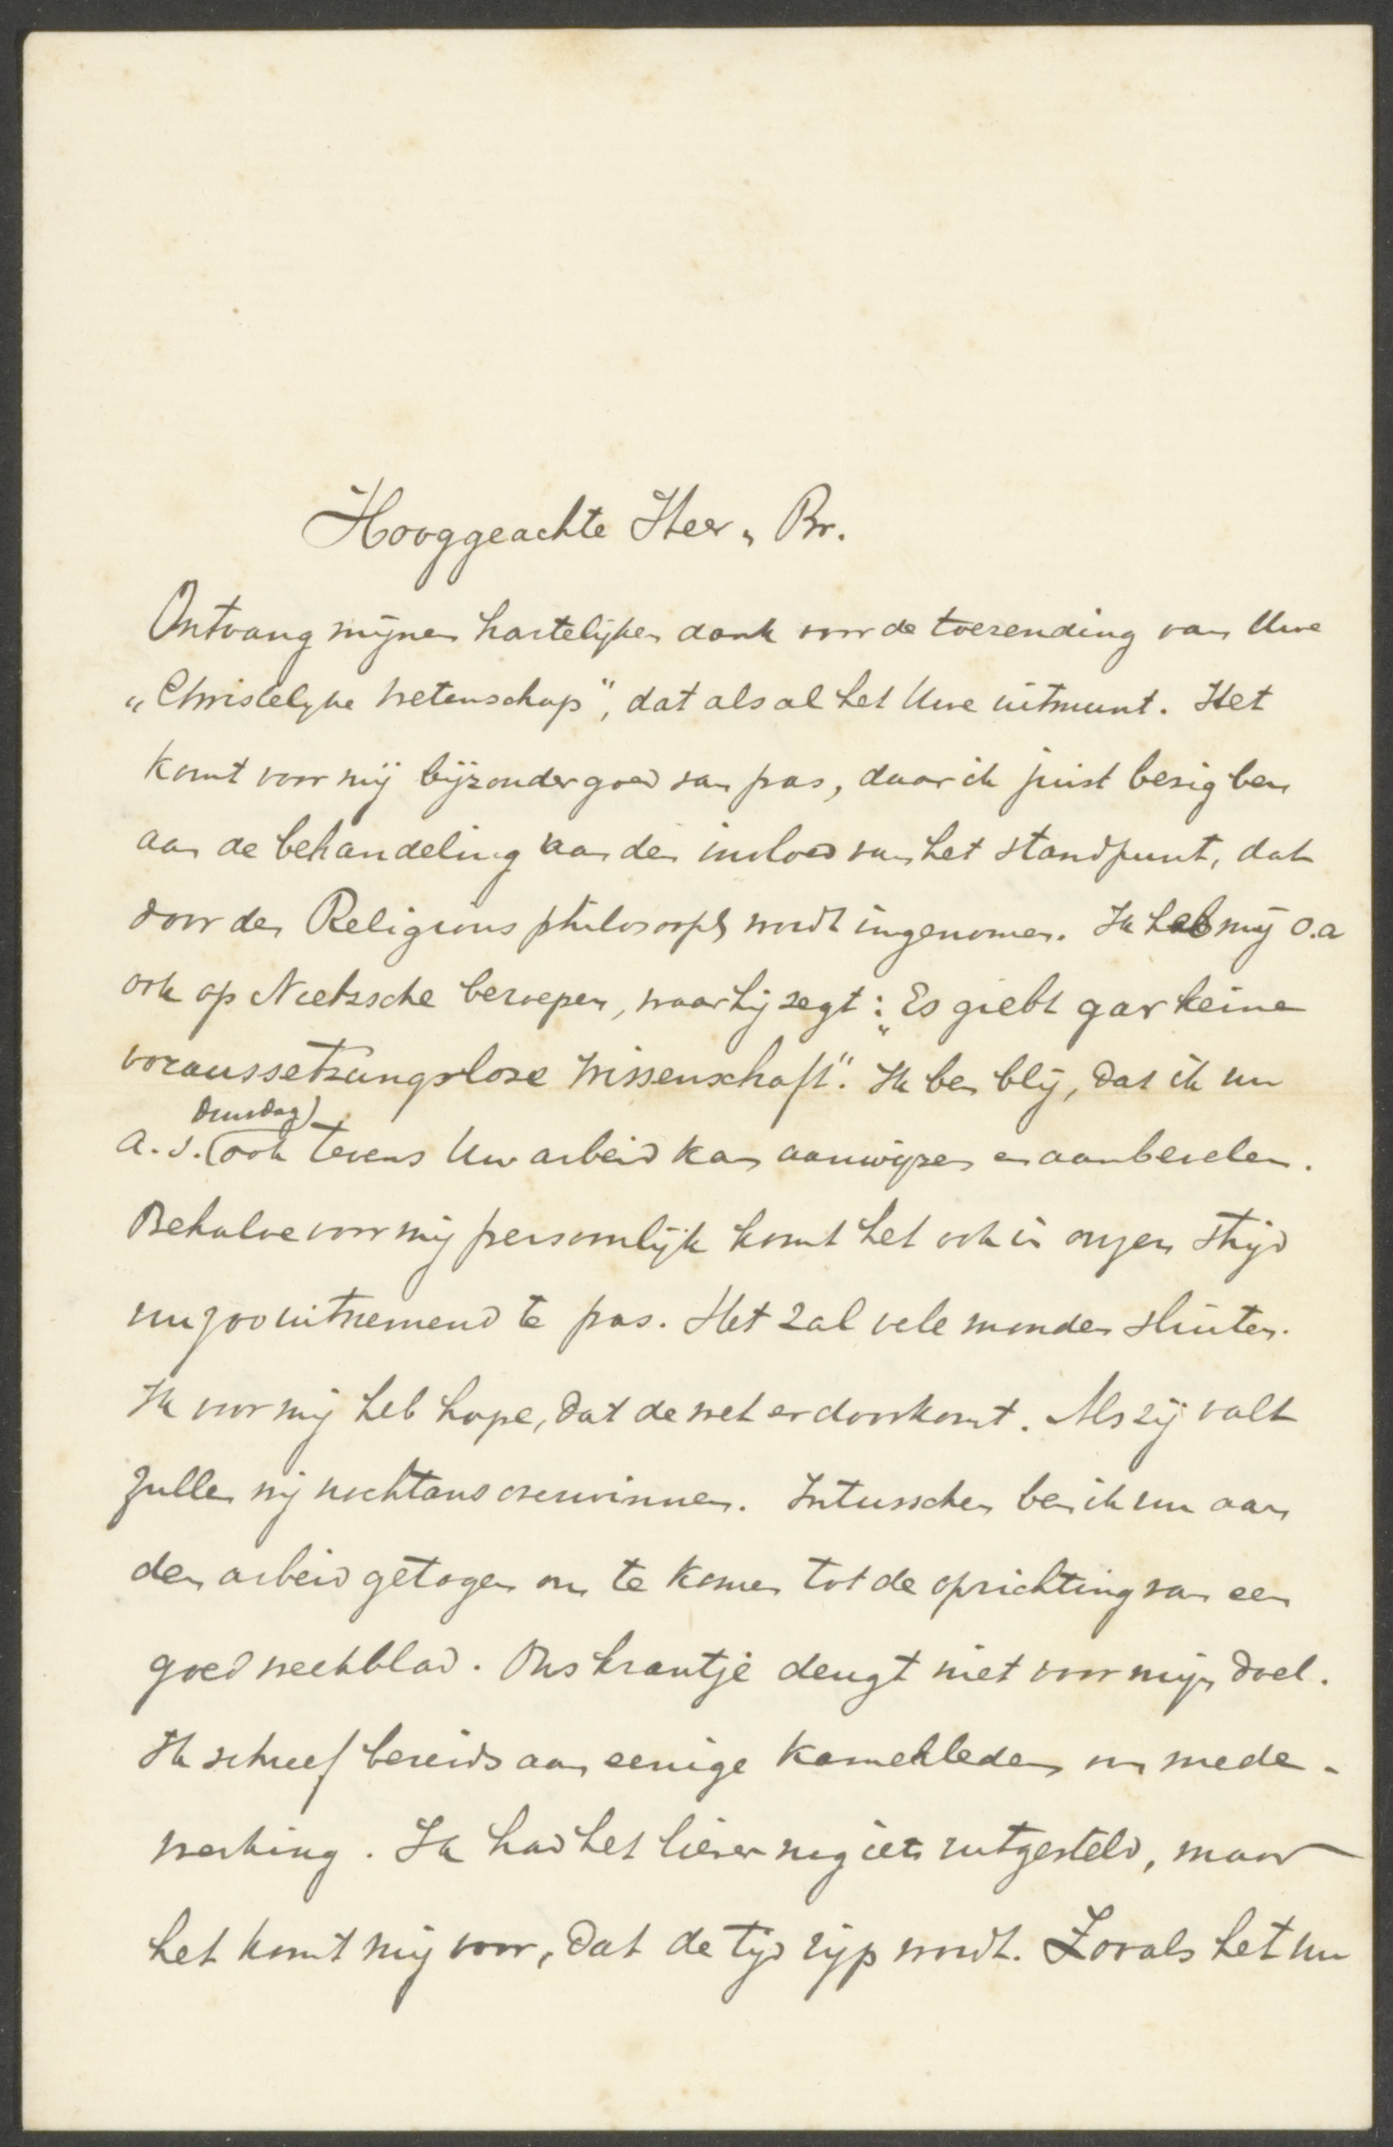 Hooggeachte Heer en Br.
Ontvang mijnen hartelijken dank voor de toezending van Uwe
„Christelijke Wetenschap", dat als al het Uwe uitmunt. Het
komt voor mij bijzonder goed van pas, daar ik juist bezig ben
aan de behandeling van den invloed van het standpunt, dat
door den Religions philosooph wordt ingenomen. Ik heb mij o.a
ook op Nietzsche beroepen, waar hij zegt: „Es giebt gar keine
voraussetzungslose Wissenschaft". Ik ben blij, dat ik nu
Dinsdag
a.s. ook tevens Uw arbeid kan aanwijzen en aanbevelen.
Behalve voor mij persoonlijk komt het ook in onzen strijd
nu zoo uitnemend te pas. Het zal vele monden sluiten.
Ik voor mij heb hope, dat de wet er doorkomt. Als zij valt
zullen wij nochtans overwinnen. Intusschen ben ik nu aan
den arbeid getogen om te komen tot de oprichting van een
goed weekblad. Ons krantje deugt niet voor mijn doel.
Ik schreef bereids aan eenige Kamerleden om mede-
werking. Ik had het liever nog iets uitgesteld, maar
het komt mij voor, dat de tijd rijp wordt. Zooals het nu